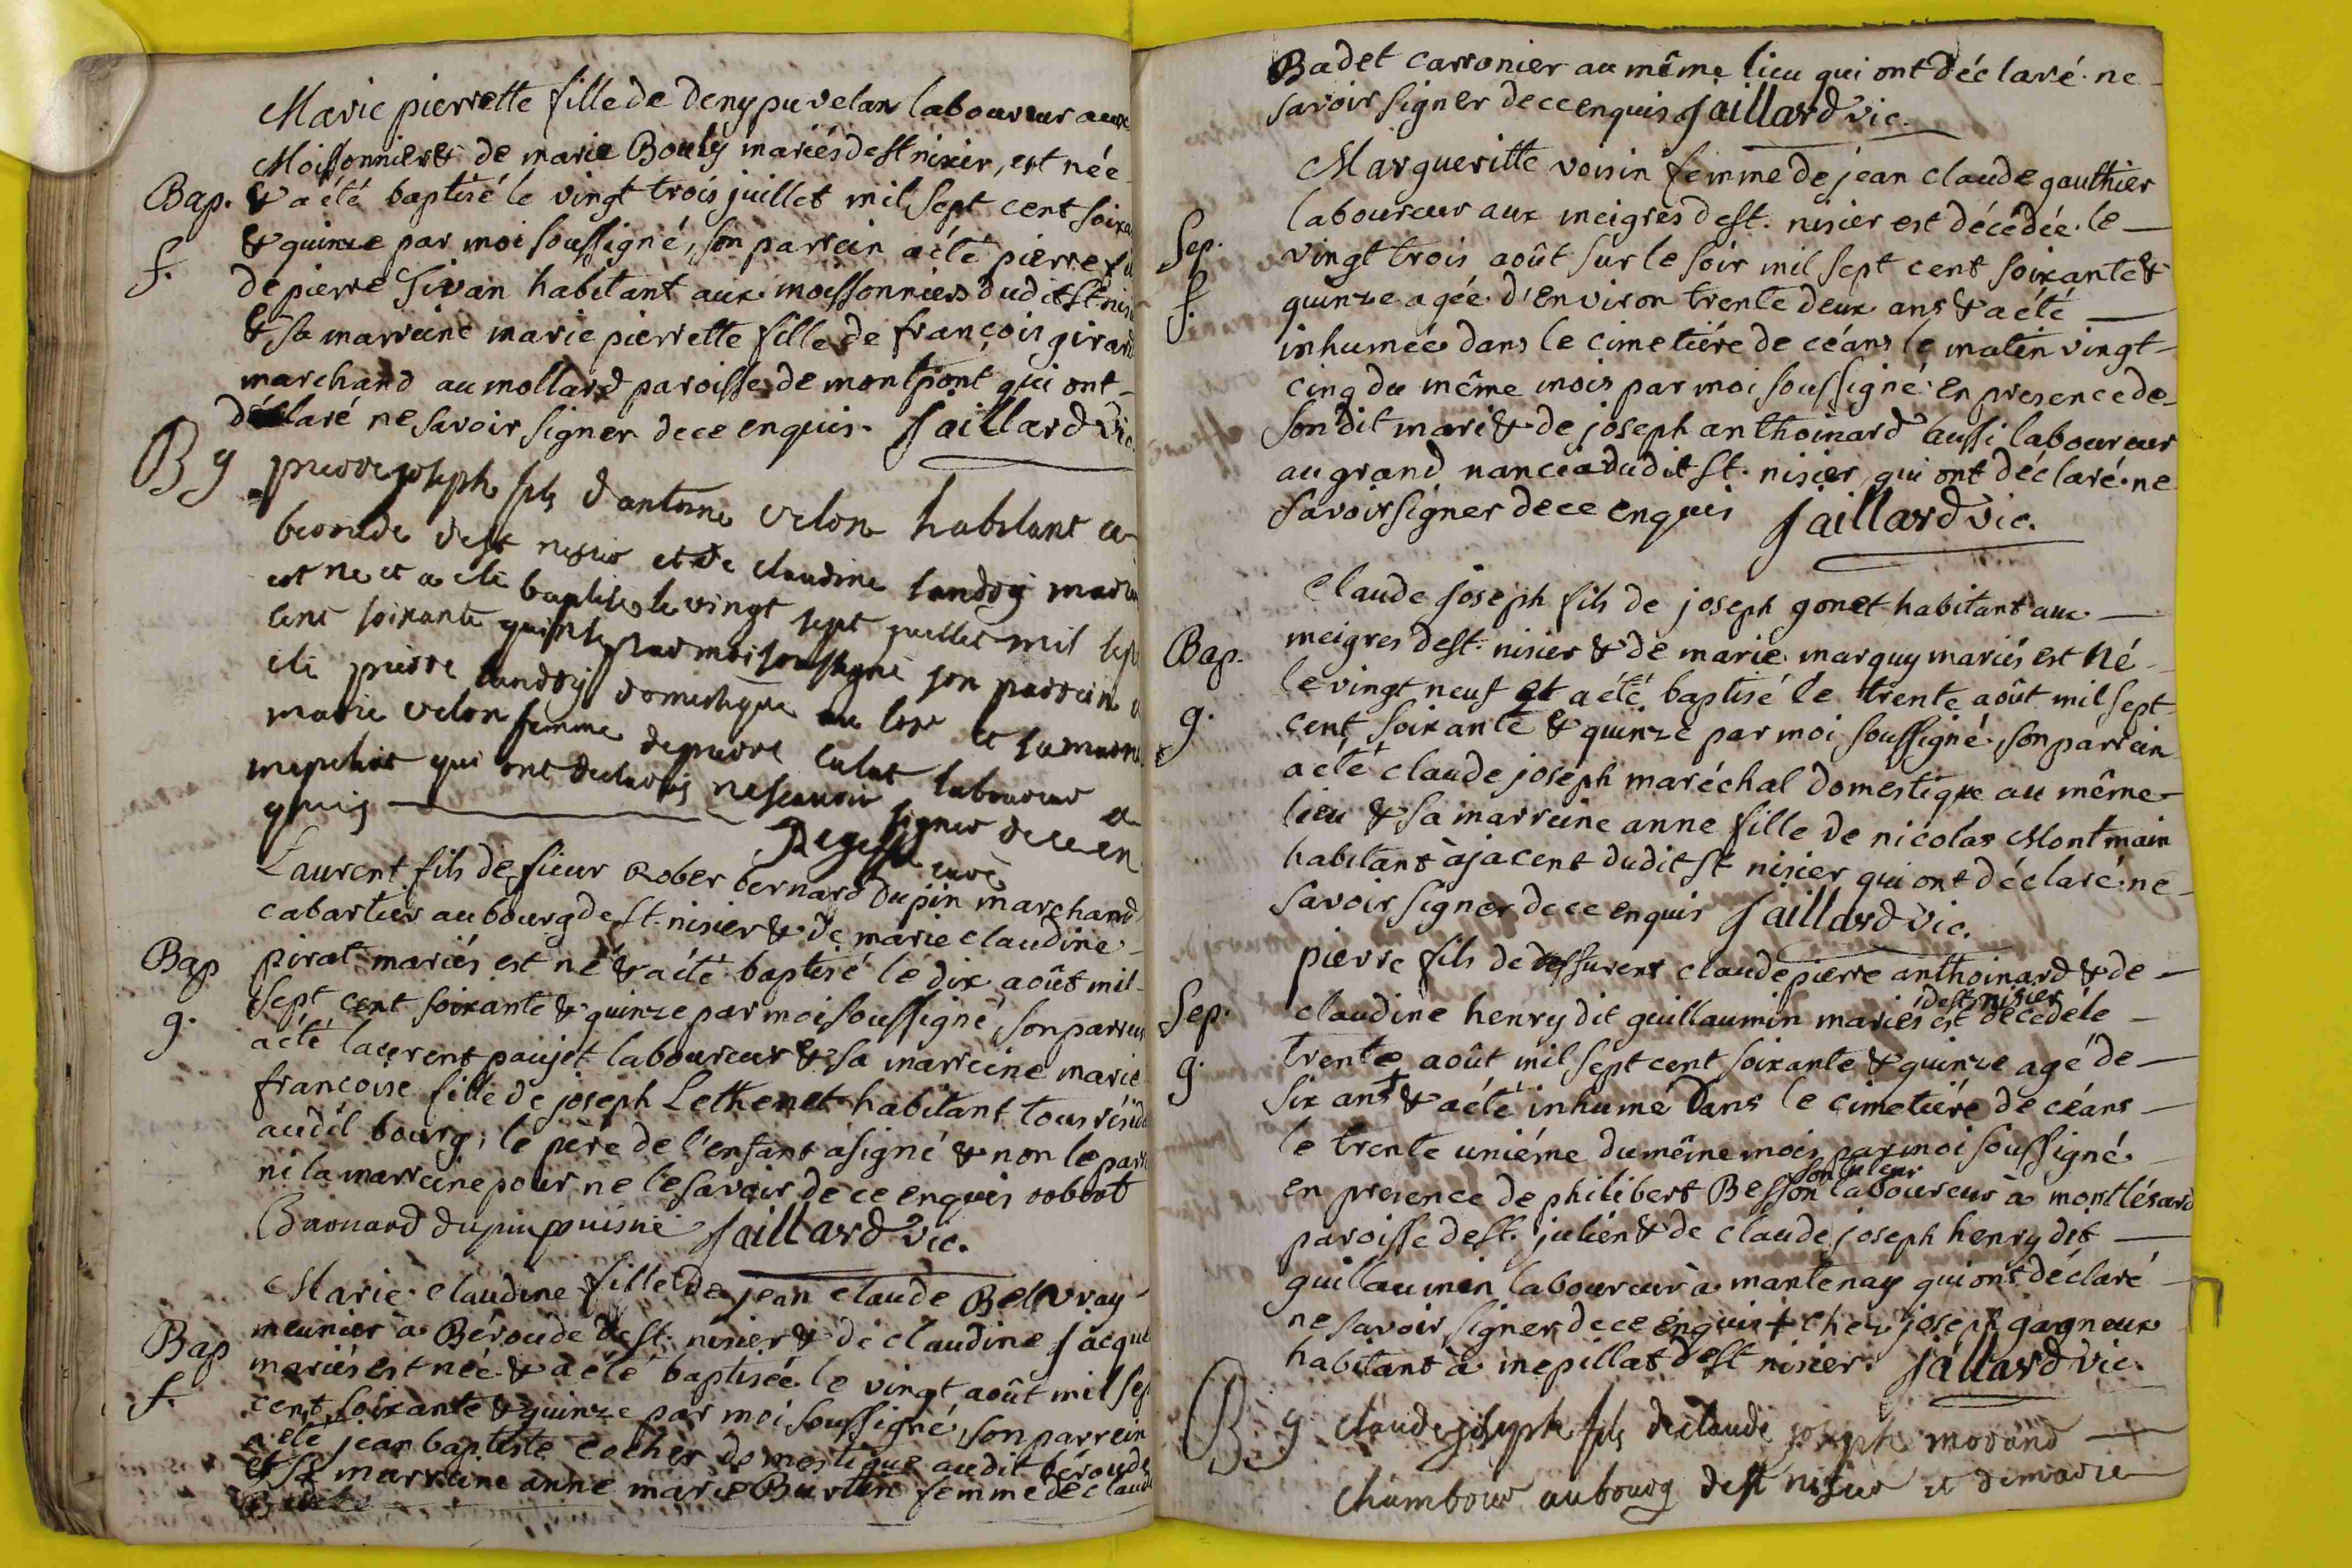 Marie pierrette fille de deny puvelan laboureur aux
Moissonniers & de marie Bouly mariés de st nisier, est née
Bap. & a été baptisé le vingt trois juillet mil sept cent soixa
f. & quinze par moi soussigné, son parrein a été pierre fil
de pierre Tivan habitant aux moissonniers dudit st nisi
& sa marreine marie pierrette fille de françois girard
marchand au mollard paroisse de montpont qui ont
déclaré ne savoir signer de ce enquis. Jaillard Vic.
B g pierre joseph fils d'antoine velon habitant a
beroude de st nisier et de claudine landry maries
est ne et a ete baptise le vingt sept juillet mil sept
cent soixante quinze par moi soussigné son parrein a
ete pierre landry domestique au lieu et sa marei
marie velon femme de pierre culat laboureur a
mepilliat qui ont declarés ne scavoir signer de ce en
quis curé
Laurent fils de sieur Rober bernard Dupin marchand
cabartier au bourg de st. nisier & de marie claudine
Bap pirat mariés est né & a été baptisé le dix août mil
g. sept cent soixante & quinze par moi soussigné, son parrein
a été laurent paujet laboureur & sa marreine marie
francoise fille de joseph Lethenet habitant tous résida
audit bourg, le père de l'enfant a signé & non le parr
ni la marreine pour ne le savoir de ce enquis robert
Bernard dupin puisné Jaillard Vic.
Marie claudine fille de jean claude Belouvray
meunier à Béroude de st. nisier & de claudine Jacque
Bap mariés est née & a été baptisée le vingt août mil sep
f. cent soixante & quinze par moi soussigné, son parrein
a été jean baptiste cocher domestique audit béroude
et sa marraine anne marie Burtin femme de claude
Badet carronier au même lieu qui ont déclaré ne
savoir signer de ce enquis Jaillard vic.
Margueritte voisin femme de jean claude gauthier
laboureur aux meigres de st. nisier est décédée le
Sep. vingt trois août sur le soir mil sept cent soixante &
f. quinze agée d'environ trente deux ans & a été
inhumée dans le cimetiére de céans le matin vingt
cinq du même mois par moi soussigné en presence de
son dit mari & de joseph anthoinard aussi laboureur
au grand nancia dudit st. nisier qui ont déclaré ne
savoir signer de ce enquis Jaillard vic.
Claude joseph fils de joseph gonet habitant aux
Bap. meigres de st. nisier & de marie marquy mariés est né
le vingt neuf et a été baptisé le trente août mil sept
g. cent soixante & quinze par moi soussigné, son parrein
a été claude joseph maréchal domestique au même
lieu & sa marreine anne fille de nicolas Montmain
habitant à jacent dudit st nisier qui ont déclaré ne
savoir signer de ce enquis Jaillard vic.
pierre fils de deffurent claude pierre anthoinard & de
de st nisier
Sep. claudine henry dit guillaumin mariés est décédé le
g. trente août mil sept cent soixante & quinze agé de
six ans + & a été inhumé dans le cimetiére de céans
le trente uniéme du même mois par moi soussigné
son tuteur
en presence de philibert Besson laboureur à montlésard
paroisse de st. julien & de claude joseph henry dit
guillaumin laboureur à mantenay qui ont déclaré
ne savoir signer de ce enquis + chez joseph gagneux
habitant à mepillat de st nisier. Jaillard vic.
B. g. claude joseph fils de claude joseph morand
chambour au bourg de st nisier et de marie